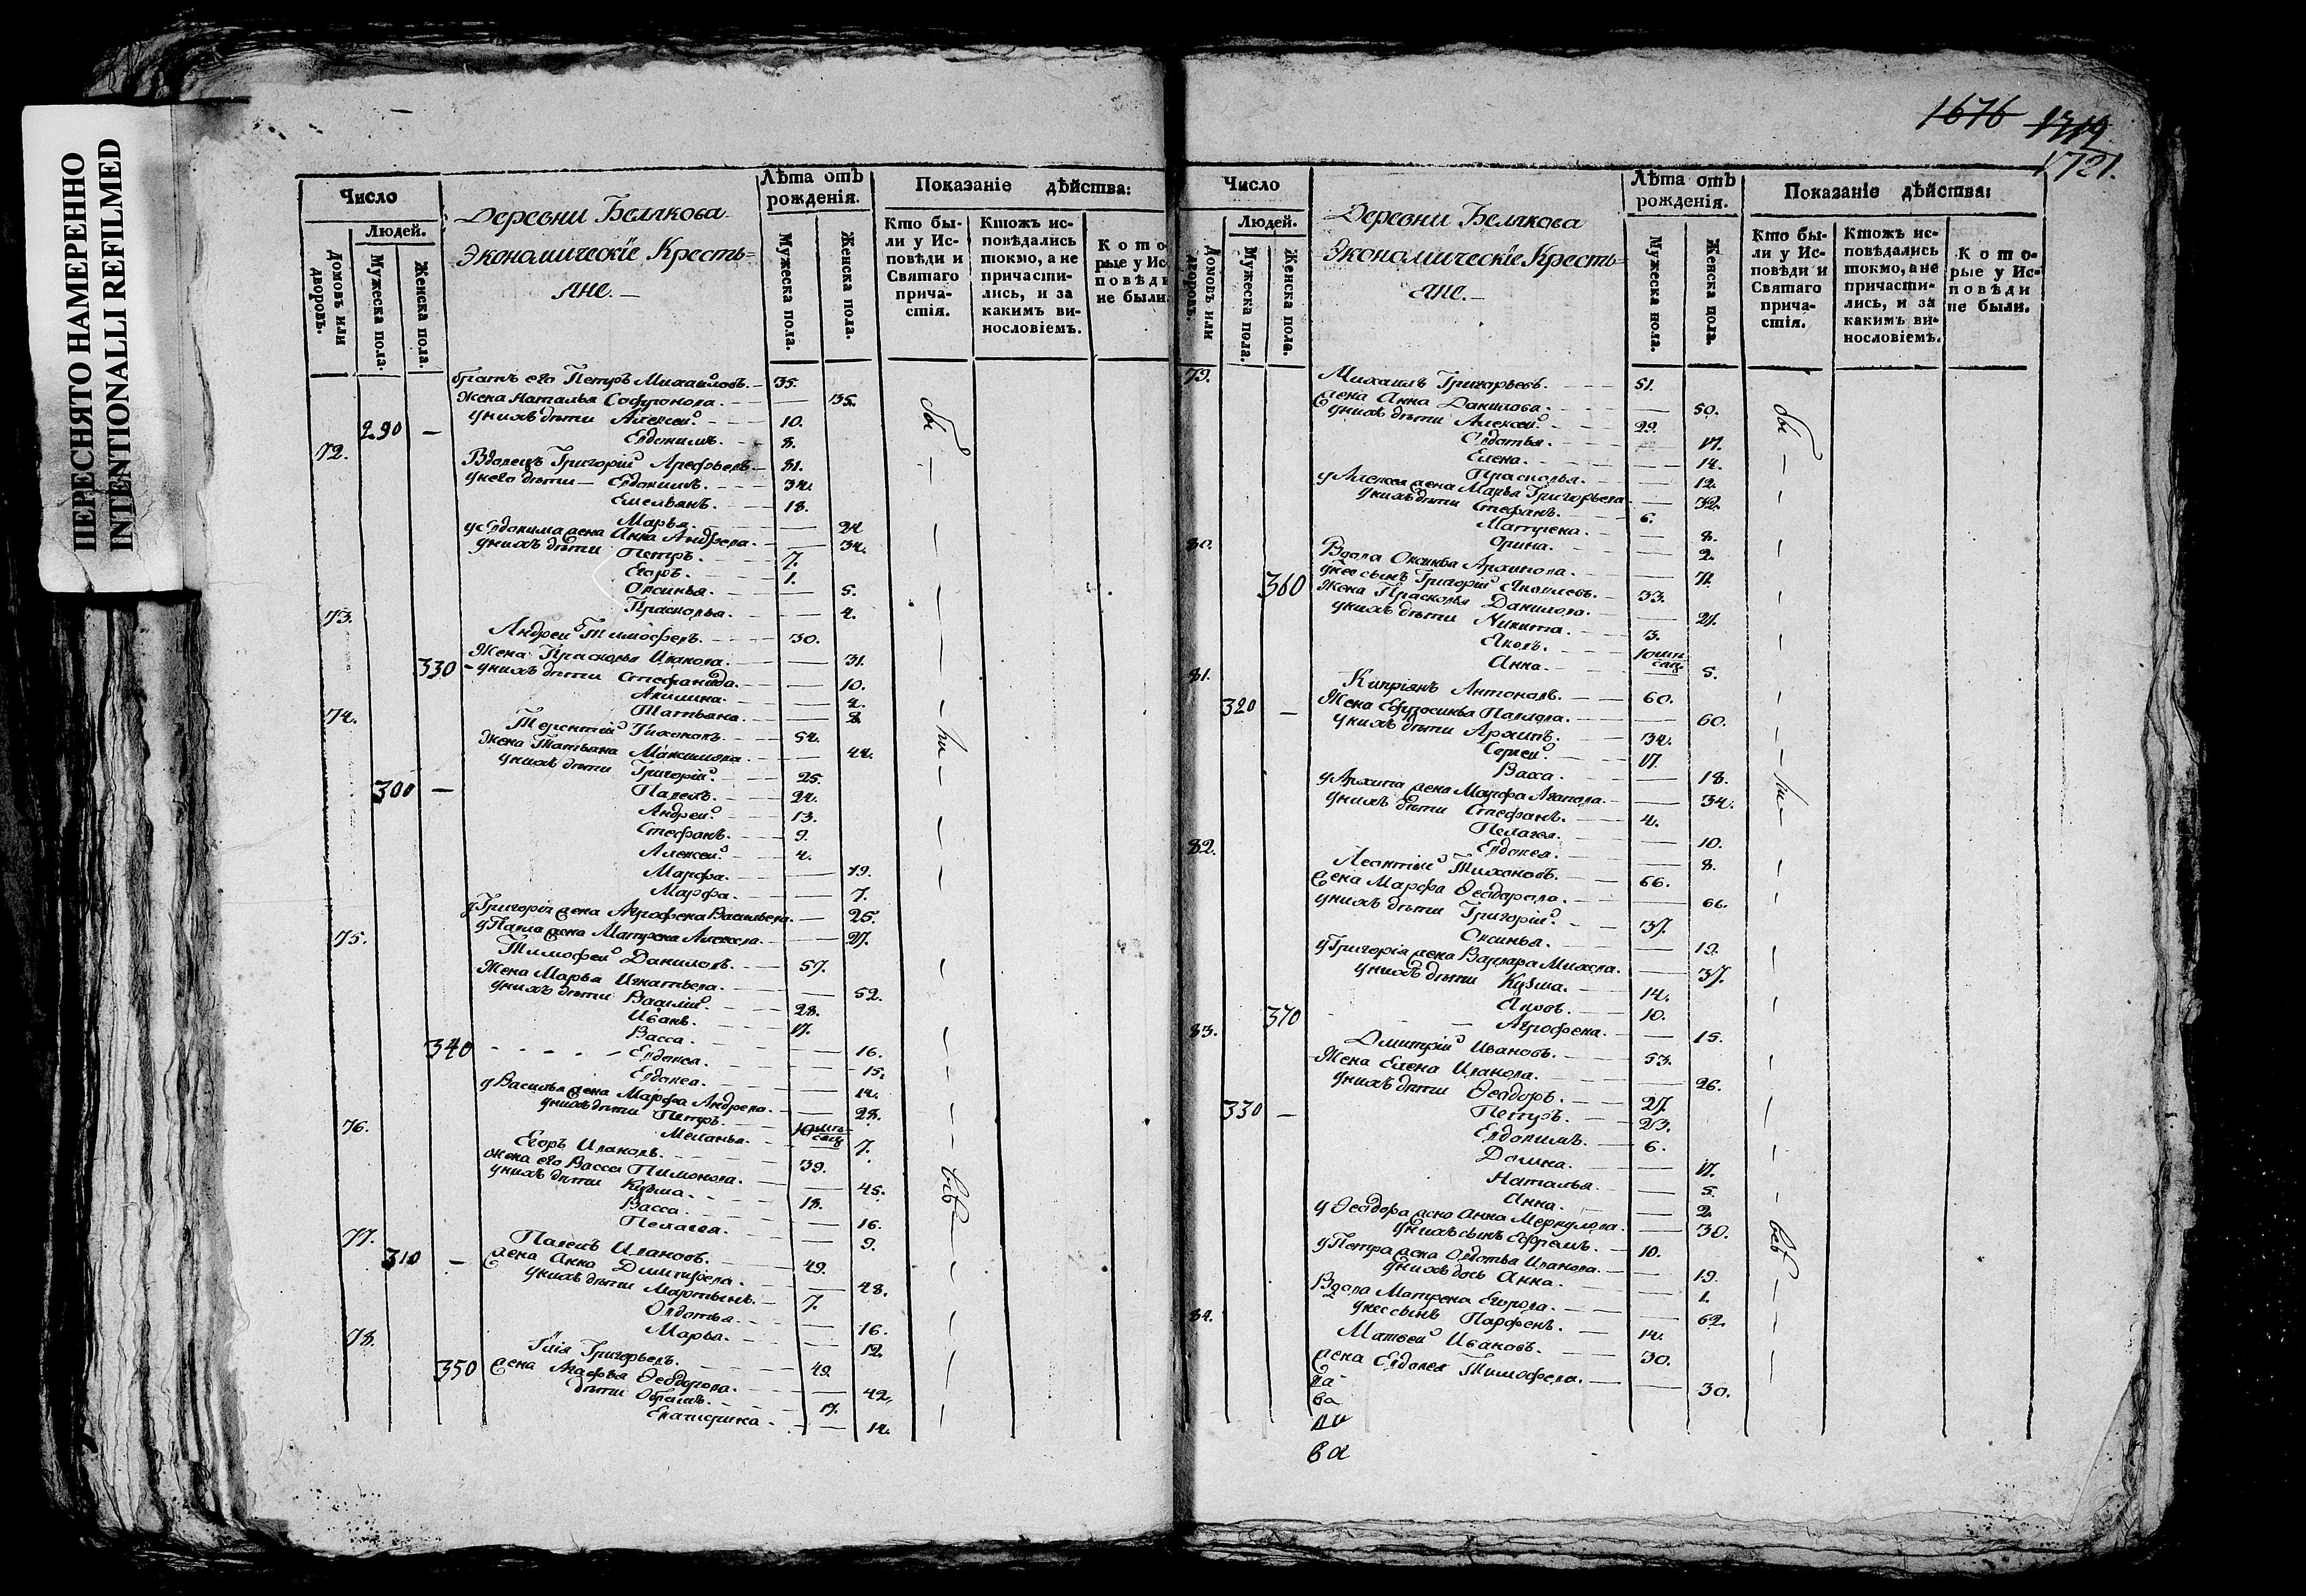 ПЕРЕСНЯТО НАМЕРЕННО
INTENTIONALLI REFILMED
Число
Людей.
Домовъ или дворовъ.
Мужеска пола.
Женска пола.
Деревни Белякова
Экономическїе Кресть=
яне.—
Лѣта отъ рожденія.
Мужеска пола.
Женска пола.
Показаніе дѣйства:
Кто бы-
ли у Ис-
повѣди и
Святаго
прича-
стія.
Ктожъ ис-
повѣдались
токмо, а не
причасти-
лись, и за
какимъ ви-
нословіемъ.
Кото
рые у Ис
повѣди
не были.
братъ его Петръ Михайловъ. 35.
Жена Наталья Софронова. 35.
у нихъ дѣти Алексей. 10.
290 — Евдокимъ. 8.
72. Вдовецъ Григорій Арефьевъ 51.
у него дѣти Евдокимъ. 34.
Емельянъ. 18.
Марья. 24
у Евдокима жена Анна Андреева. 34.
у нихъ дѣти Петръ. 7.
Егоръ. 1.
Оксинья. 5.
Прасковья. 4.
73. Андрей Тимофеевъ. 30.
Жена Прасковья Иванова. 31.
330 у нихъ дѣти Стефанида. 10.
Акилина. 4.
Татьяна. 2
74. Терентій Тихоновъ. 54.
Жена Татьяна Максимова. 44.
у нихъ дѣти Григорій. 25.
300 — Павелъ. 24.
Андрей. 13.
Стефанъ. 9.
Алексей. 4.
Марфа. 19.
Марфа. 7.
у Григорія жена Агрофена Васильева. 25.
у Павла жена Матрена Алексеева. 27.
75. Тимофей Даниловъ. 57.
Жена Марья Игнатьева. 52.
у нихъ дѣти Василій. 28.
Иванъ. 17.
Васса. 16.
340 Евдокея. 15.
Евдокея. 14.
у Василья жена Марфа Андреева. 28.
у нихъ дѣти Петръ. 10 мѣсяц
Меланья. 7.
76. Егоръ Ивановъ. 39.
жена его Васса Пимонова. 45.
у нихъ дѣти Кузма. 18.
Васса. 16.
Пелагея. 9.
77. Павелъ Ивановъ. 49.
310 — жена Анна Дмитрева. 48.
у нихъ дѣти Мартынъ. 7.
Овдотья. 16.
Марья. 12.
78. Илія Григорьевъ. 49.
350 жена Агафья Ѳеодорова. 42.
дѣти Обрамъ. 17.
Екатерина. 14.
1676 1719
1721.
Число
Людей.
Домовъ или дворовъ.
Мужеска пола.
Женска пола.
Деревни Белякова
Экономическїе Кресть=
яне.—
Лѣта отъ рожденія.
Мужеска пола.
Женска пола.
Показаніе дѣйства:
Кто бы-
ли у Ис-
повѣди и
Святаго
прича-
стія.
Ктожъ ис-
повѣдались
токмо, а не
причасти-
лись, и за
какимъ ви-
нословіемъ.
Кото-
рые у Ис-
повѣди
не были.
79. Михаилъ Григорьевъ. 51.
жена Анна Данилова. 50.
у нихъ дѣти Алексей. 29.
Овдотья. 17.
Елена. 14.
Прасковья. 12.
у Алексея жена Марья Григорьева. 32.
у нихъ дѣти Стефанъ. 6.
Матрена. 8.
Орина. 2.
80. Вдова Оксинья Архипова. 71.
у нее сынъ Григорій Яковлевъ. 33.
360 Жена Прасковья Данилова. 27.
у нихъ дѣти Никита. 3.
Яковъ. 10 мѣсяц
Анна. 5.
81. Кипріянъ Антоновъ. 60.
320 — Жена Ефросинья Павлова. 60.
у нихъ дѣти Архипъ. 34.
Сергей. 17.
Васса. 18.
у Архипа жена Марфа Агапова. 34.
у нихъ дѣти Стефанъ. 4.
Пелагея. 10.
Евдокея. 8.
82. Леонтій Тихоновъ. 66.
жена Марфа Ѳеодорова. 66.
у нихъ дѣти Григорій. 37.
Оксинья. 19.
у Григорія жена Варвара Михеева. 37.
у нихъ дѣти Кузма. 14.
Яковъ. 10.
370 Агрофена. 15.
83. Дмитрій Ивановъ. 53.
Жена Елена Иванова. 26.
у нихъ дѣти Ѳеодоръ. 27.
330 — Петръ. 23.
Евдокимъ. 6.
Домна. 17.
Наталья. 5.
Анна. 2.
у Ѳеодора жена Анна Меркулова. 30.
у нихъ сынъ Ефремъ. 10.
у Петра жена Овдотья Иванова. 19.
у нихъ дочь Анна. 1.
Вдова Матрена Егорова. 62.
у нее сынъ Парфенъ. 14.
84. Матвей Ивановъ. 30.
жена Евдокея Тимофеева. 30.
ва